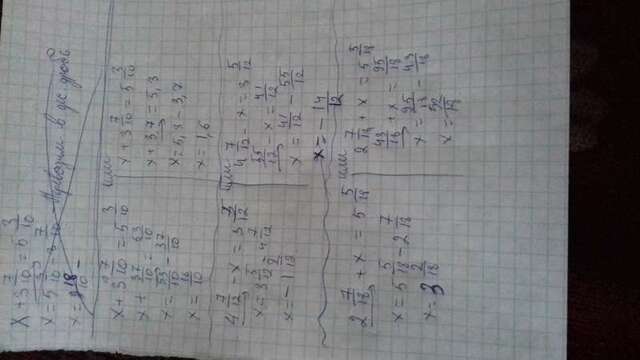 x + 3 7/10 = 5 3/10
x = 5 3/10 - 3 7/10
x = 18/10 -
Приводим в дес. дробь
x + 3 7/10 = 5 3/10
x + 37/10 = 53/10
x = 53/10 - 37/10
x = 16/10
или
x + 3 7/10 = 5 3/10
x + 3,7 = 5,3
x = 5,3 - 3,7
x = 1,6
4 7/12 - x = 3 5/12
x = 3 5/12 - 4 7/12
x = -1 2/12
или
4 7/12 - x = 3 5/12
55/12 - x = 41/12
x = 41/12 - 55/12
x = - 14/12
2 7/18 + x = 5 5/18
x = 5 5/18 - 2 7/18
x = 3 2/18
или
2 7/18 + x = 5 5/18
43/18 + x = 95/18
x = 95/18 - 43/18
x = 52/18